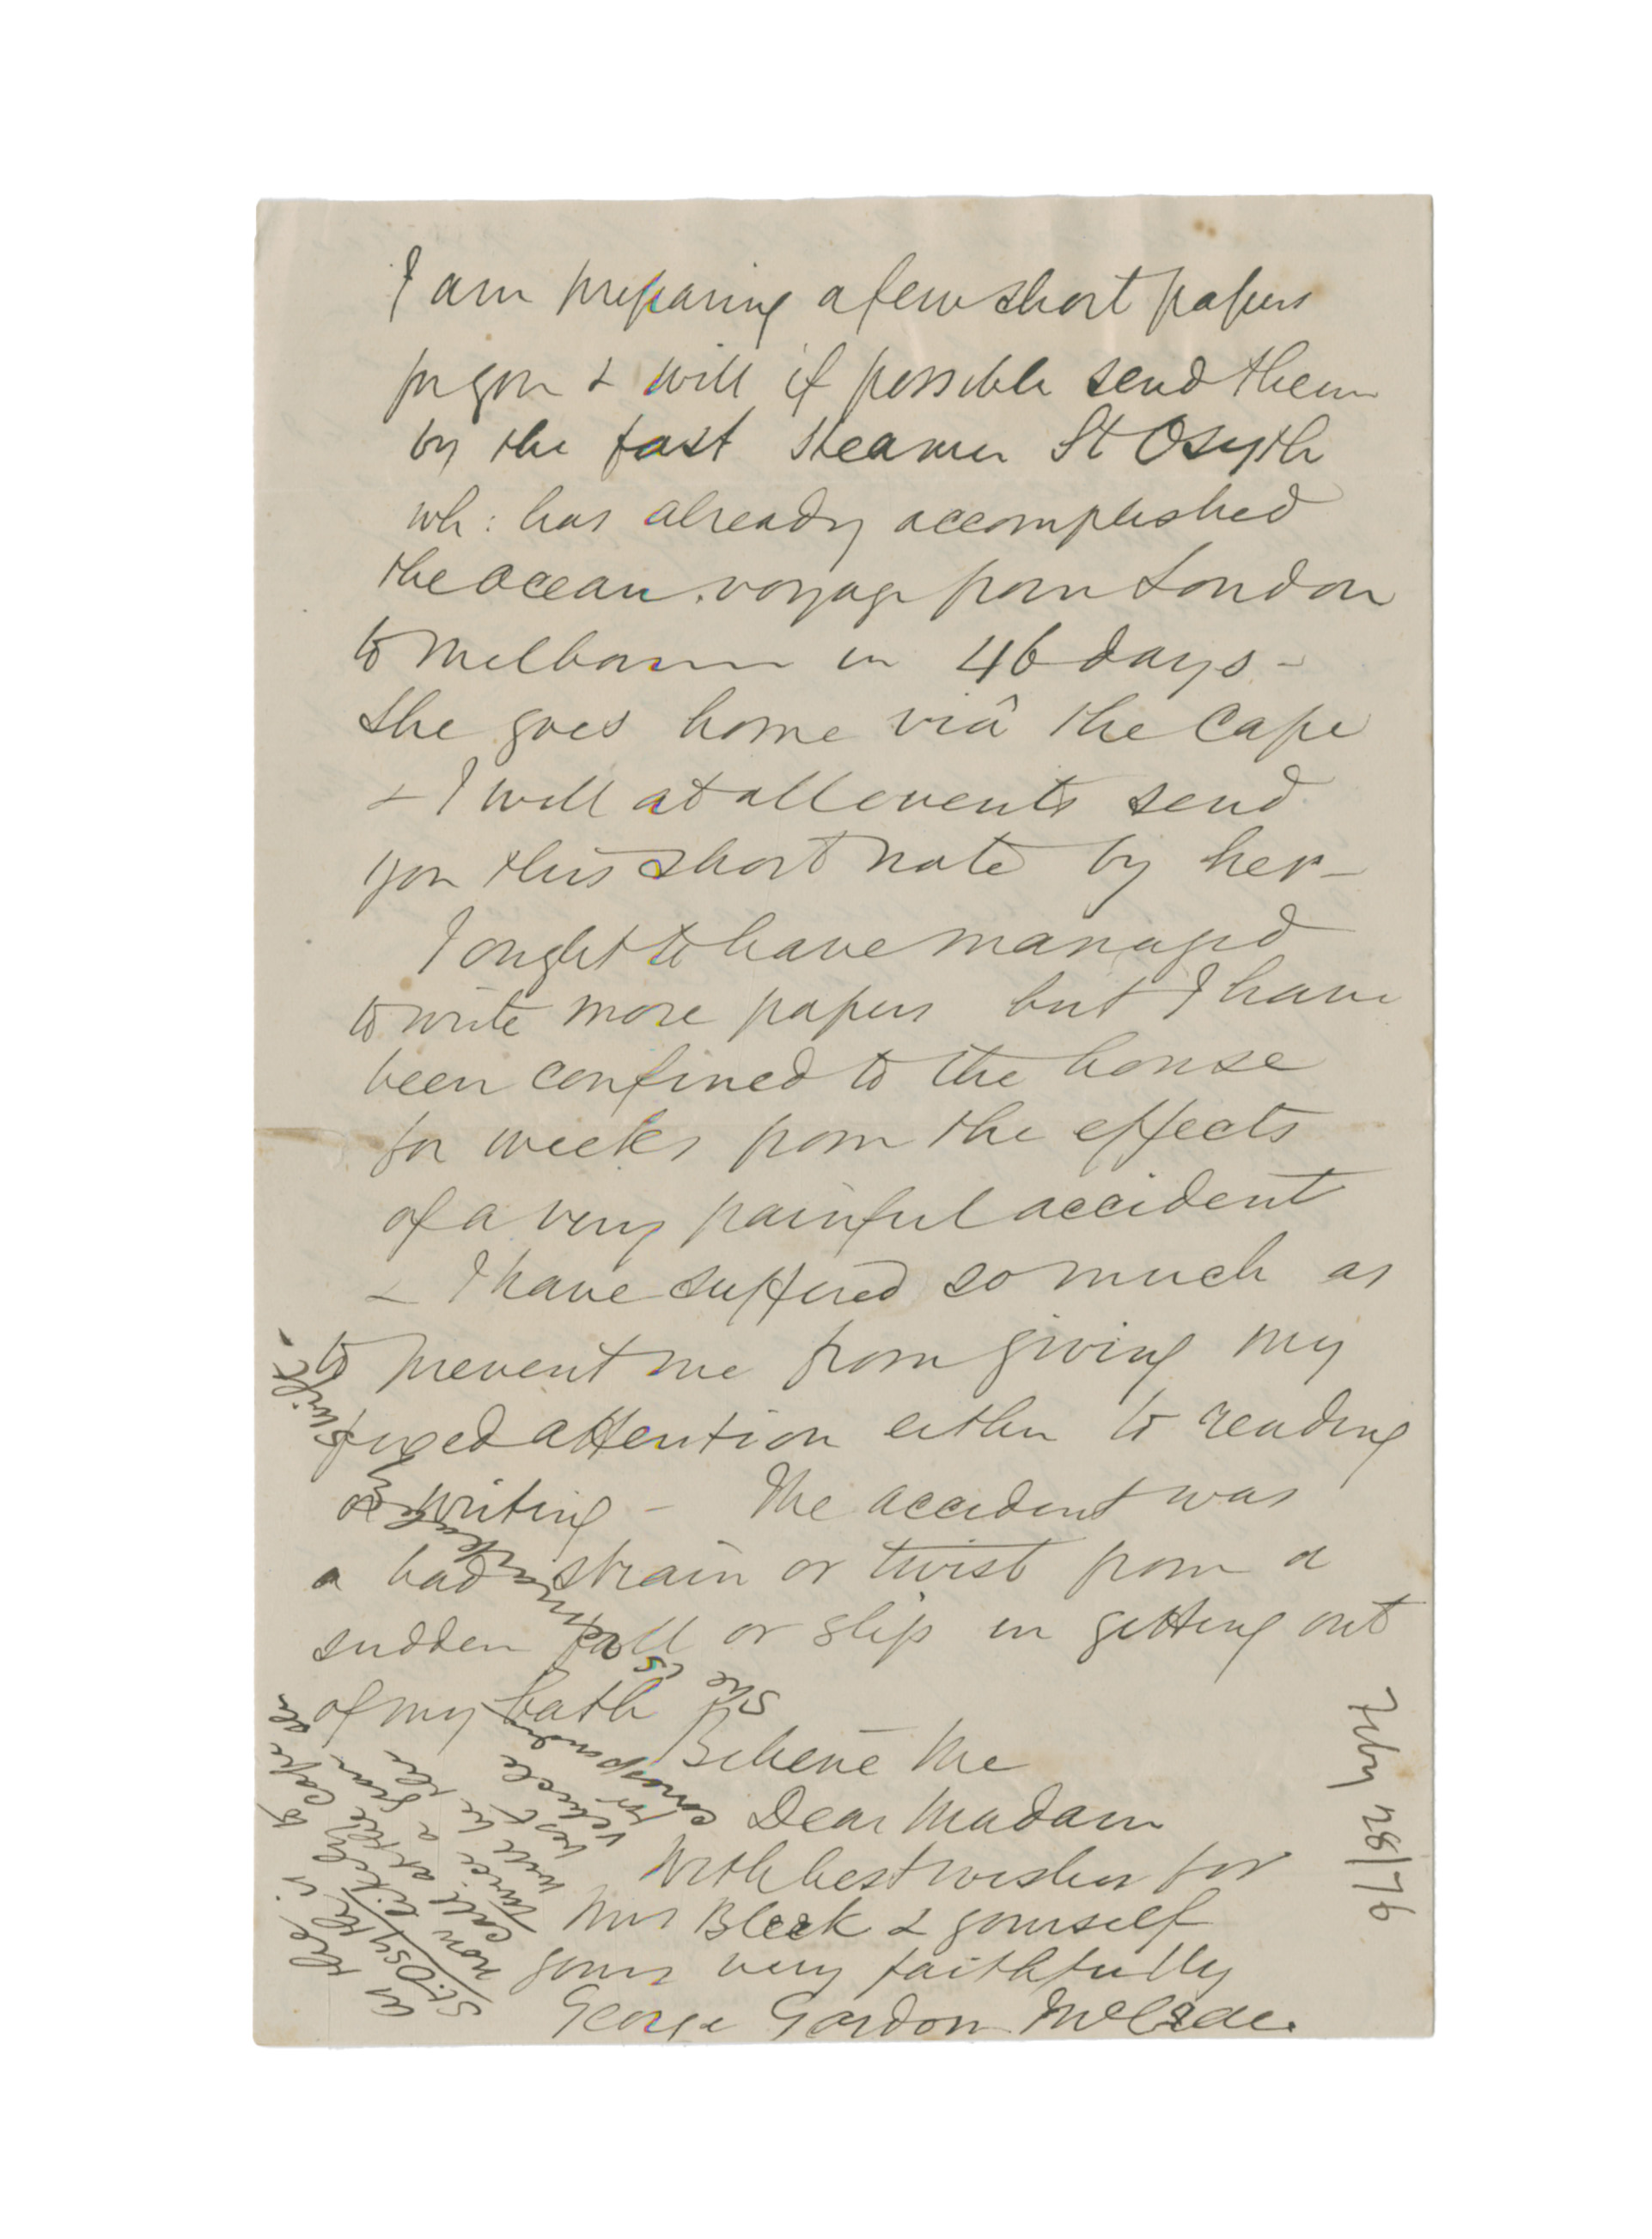 I am preparing a few short papers
for you & will if possible send them
by the fast steamer St Osyth
wh: has already accomplished
the ocean voyage from London
to Melbourne in 46 days -
She goes home viâ the Cape
& I will at all events send
you this short note by her -
I ought to have managed
to write more papers but I have
been confined to the house
for weeks from the effects
of a very painful accident
& I have suffered so much as
to prevent me from giving my
fixed attention either to reading
or writing - The accident was
a bad strain or twist from a
sudden fall or slip in getting out
of my bath
Believe me
Dear Madam
With best wishes for
Mrs Bleek & yourself
yours very faithfully
George Gordon McCrae.
July 28/76
As the
St. Osyth is
now likely to
call at the Cape
twice a year she
will be the
best vehicle
for
correspondence
She is
remarkably
swift -